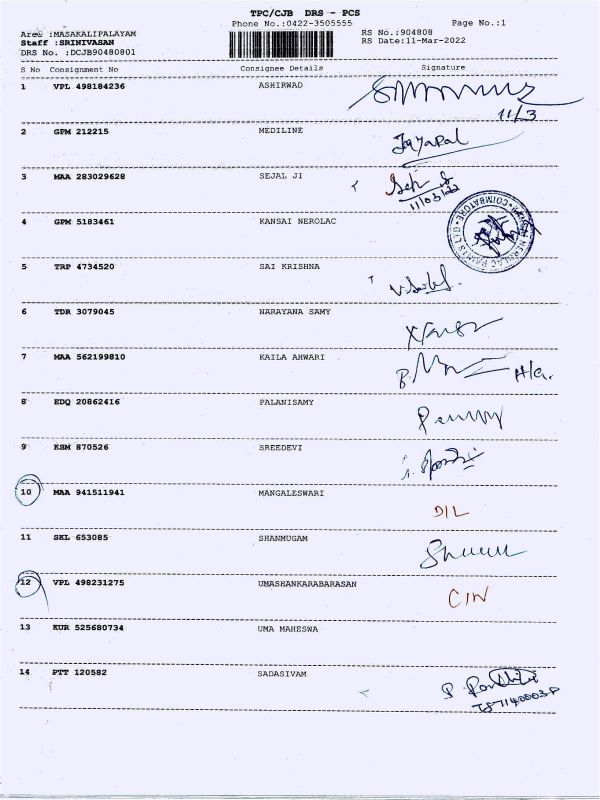 TPC/CJB DRS - PCS
Phone No.:0422-3505555
Page No.:1
Area :MASAKALIPALAYAM
Staff :SRINIVASAN
DRS No. :DCJB90480801
RS No.:904808
RS Date:11-Mar-2022
S No Consignment No Consignee Details Signature
1 VPL 498184236 ASHIRWAD
11/3
2 GPM 212215 MEDILINE Jayapal
3 MAA 283029628 SEJAL JI
11/03/22
4 GPM 5183461 KANSAI NEROLAC
5 TRP 4734520 SAI KRISHNA
6 TDR 3079045 NARAYANA SAMY
7 MAA 562199810 KAILA AHWARI
8 EDQ 20862416 PALANISAMY
9 KSM 870526 SREEDEVI
10 MAA 941511941 MANGALESWARI
D/L
11 SKL 653085 SHANMUGAM
12 VPL 498231275 UMASHANKARABARASAN
C/N
13 KUR 525680734 UMA MAHESWA
14 PTT 120582 SADASIVAM